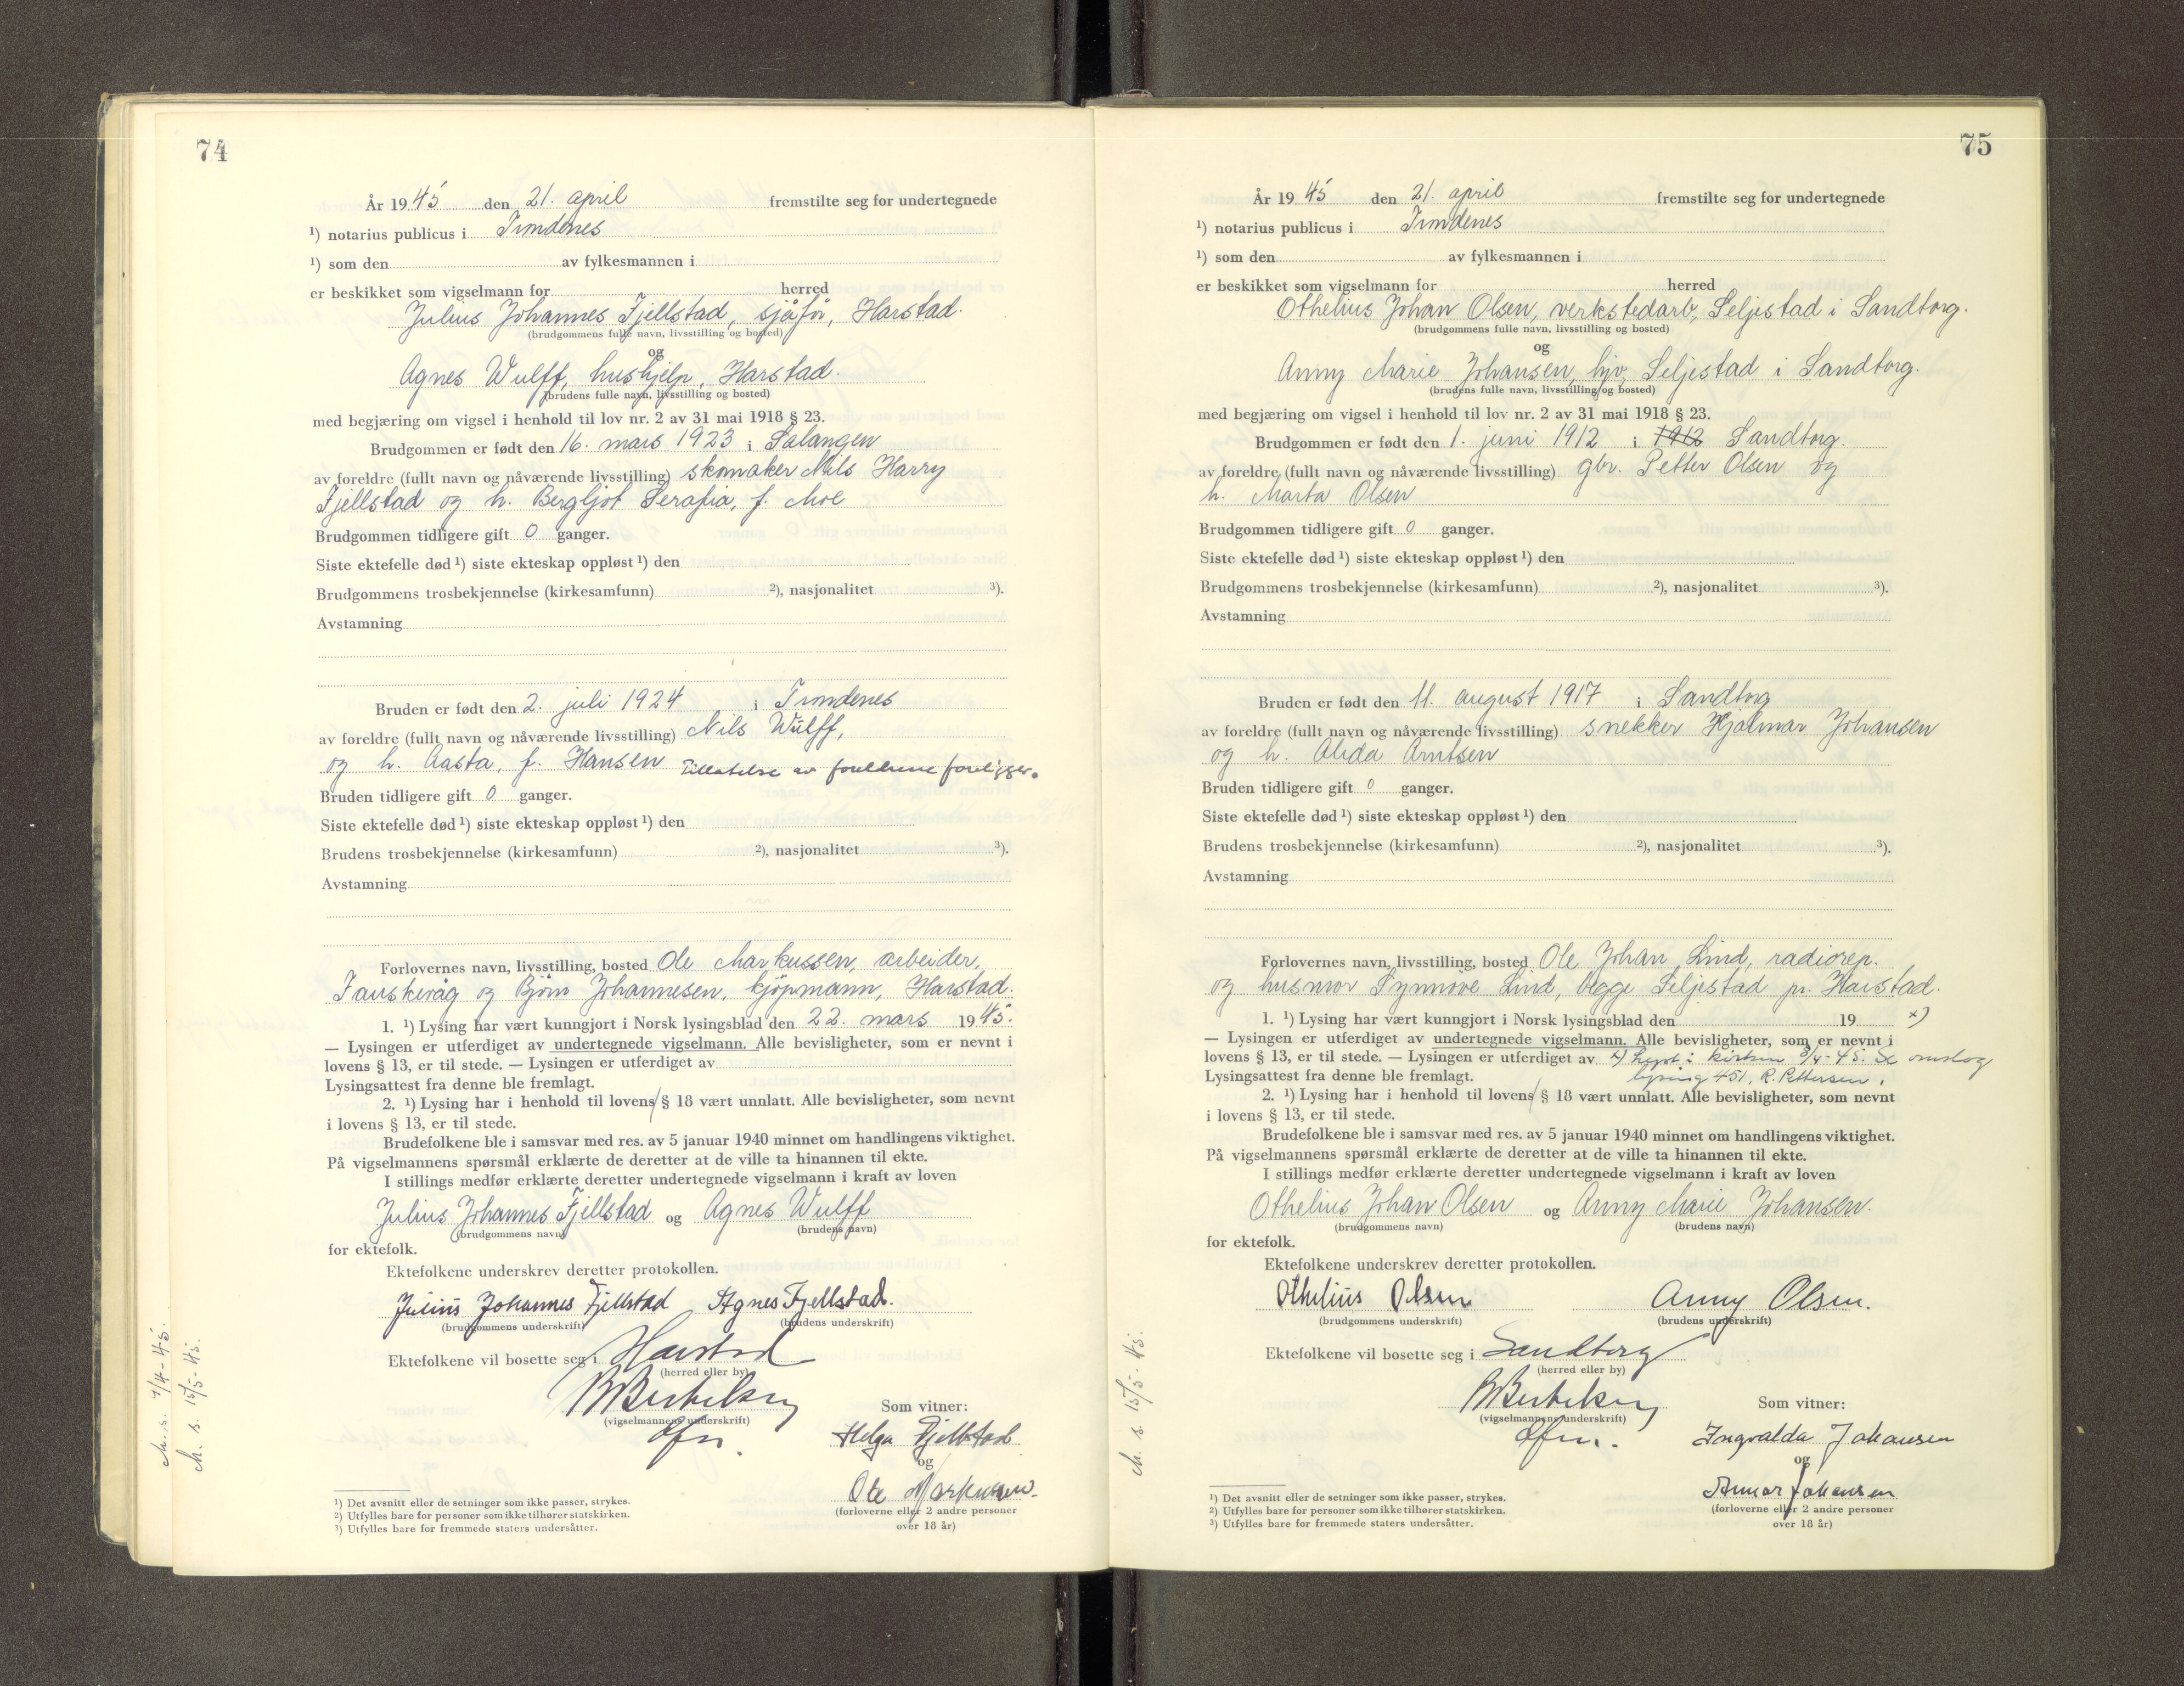 74
År 1945 den 21. april fremstilte seg for undertegnede
¹) notarius publicus i Trondenes
¹) som den av fylkesmannen i
er beskikket som vigselmann for herred
Julius Johannes Fjellstad, sjåfør, Harstad.
(brudgommens fulle navn, livsstilling og bosted)
og
Agnes Wulff, hushjelp, Harstad.
(brudens fulle navn, livsstilling og bosted)
med begjæring om vigsel i henhold til lov nr. 2 av 31 mai 1918 § 23.
Brudgommen er født den 16. mars 1923 i Salangen
av foreldre (fullt navn og nåværende livsstilling) skomaker Nils Harry
Fjellstad og h. Bergljot Serafia, f. Moe
Brudgommen tidligere gift 0 ganger.
Siste ektefelle død ¹) siste ekteskap oppløst ¹) den
Brudgommens trosbekjennelse (kirkesamfunn) ²), nasjonalitet ³).
Avstamning
Bruden er født den 2. juli 1924 i Trondenes
av foreldre (fullt navn og nåværende livsstilling) Nils Wulff,
og h. Aasta, f. Hansen Tillatelse av foreldrene foreligger.
Bruden tidligere gift 0 ganger.
Siste ektefelle død ¹) siste ekteskap oppløst ¹) den
Brudens trosbekjennelse (kirkesamfunn) ²), nasjonalitet ³).
Avstamning
Forlovernes navn, livsstilling, bosted Ole Markussen, arbeider,
Fauskevåg og Bjørn Johannesen, kjøpmann, Harstad.
1. ¹) Lysing har vært kunngjort i Norsk lysingsblad den 22. mars 1945.
— Lysingen er utferdiget av undertegnede vigselmann. Alle bevisligheter, som er nevnt i
lovens § 13, er til stede. — Lysingen er utferdiget av
Lysingsattest fra denne ble fremlagt.
2. ¹) Lysing har i henhold til lovens § 18 vært unnlatt. Alle bevisligheter, som nevnt
i lovens § 13, er til stede.
Brudefolkene ble i samsvar med res. av 5 januar 1940 minnet om handlingens viktighet.
På vigselmannens spørsmål erklærte de deretter at de ville ta hinannen til ekte.
I stillings medfør erklærte deretter undertegnede vigselmann i kraft av loven
Julius Johannes Fjellstad og Agnes Wulff
(brudgommens navn) (brudens navn)
for ektefolk.
Ektefolkene underskrev deretter protokollen.
Julius Johannes Fjellstad Agnes Fjellstad.
(brudgommens underskrift) (brudens underskrift)
Ektefolkene vil bosette seg i Harstad
(herred eller by)
(vigselmannens underskrift)
Som vitner:
Helga Fjellstad
og
Ole Markussen.
(forloverne eller 2 andre personer
over 18 år)
¹) Det avsnitt eller de setninger som ikke passer, strykes.
²) Utfylles bare for personer som ikke tilhører statskirken.
³) Utfylles bare for fremmede staters undersåtter.
m. s. 7/4-45.
m. s. 15/5-45.
75
År 1945 den 21. april fremstilte seg for undertegnede
¹) notarius publicus i Trondenes
¹) som den av fylkesmannen i
er beskikket som vigselmann for herred
Othelius Johan Olsen, verkstedarb, Seljestad i Sandtorg.
(brudgommens fulle navn, livsstilling og bosted)
og
Anny Marie Johansen, hjv, Seljestad i Sandtorg.
(brudens fulle navn, livsstilling og bosted)
med begjæring om vigsel i henhold til lov nr. 2 av 31 mai 1918 § 23.
Brudgommen er født den 1. juni 1912 i 1912 Sandtorg.
av foreldre (fullt navn og nåværende livsstilling) gbr. Petter Olsen og
h. Marta Olsen
Brudgommen tidligere gift 0 ganger.
Siste ektefelle død ¹) siste ekteskap oppløst ¹) den
Brudgommens trosbekjennelse (kirkesamfunn) ²), nasjonalitet ³).
Avstamning
Bruden er født den 11. august 1917 i Sandtorg
av foreldre (fullt navn og nåværende livsstilling) snekker Hjalmar Johansen
og h. Alida Arntsen
Bruden tidligere gift 0 ganger.
Siste ektefelle død ¹) siste ekteskap oppløst ¹) den
Brudens trosbekjennelse (kirkesamfunn) ²), nasjonalitet ³).
Avstamning
Forlovernes navn, livsstilling, bosted Ole Johan Lind, radiorep.
og husmor Synnøve Lind, begge Seljestad pr. Harstad.
1. ¹) Lysing har vært kunngjort i Norsk lysingsblad den 19 x)
— Lysingen er utferdiget av undertegnede vigselmann. Alle bevisligheter, som er nevnt i
lovens § 13, er til stede. — Lysingen er utferdiget av x) Lyst i kirken 8/4-45. Se omslag
Lysingsattest fra denne ble fremlagt. lysing 451, R. Pettersen.
2. ¹) Lysing har i henhold til lovens § 18 vært unnlatt. Alle bevisligheter, som nevnt
i lovens § 13, er til stede.
Brudefolkene ble i samsvar med res. av 5 januar 1940 minnet om handlingens viktighet.
På vigselmannens spørsmål erklærte de deretter at de ville ta hinannen til ekte.
I stillings medfør erklærte deretter undertegnede vigselmann i kraft av loven
Othelius Johan Olsen og Anny Marie Johansen.
(brudgommens navn) (brudens navn)
for ektefolk.
Ektefolkene underskrev deretter protokollen.
Othelius Olsen Anny Olsen.
(brudgommens underskrift) (brudens underskrift)
Ektefolkene vil bosette seg i Sandtorg
(herred eller by)
(vigselmannens underskrift)
Som vitner:
Ingvalda Johansen
og
Annar Johansen
(forloverne eller 2 andre personer
over 18 år)
¹) Det avsnitt eller de setninger som ikke passer, strykes.
²) Utfylles bare for personer som ikke tilhører statskirken.
³) Utfylles bare for fremmede staters undersåtter.
m. s. 15/5-45.